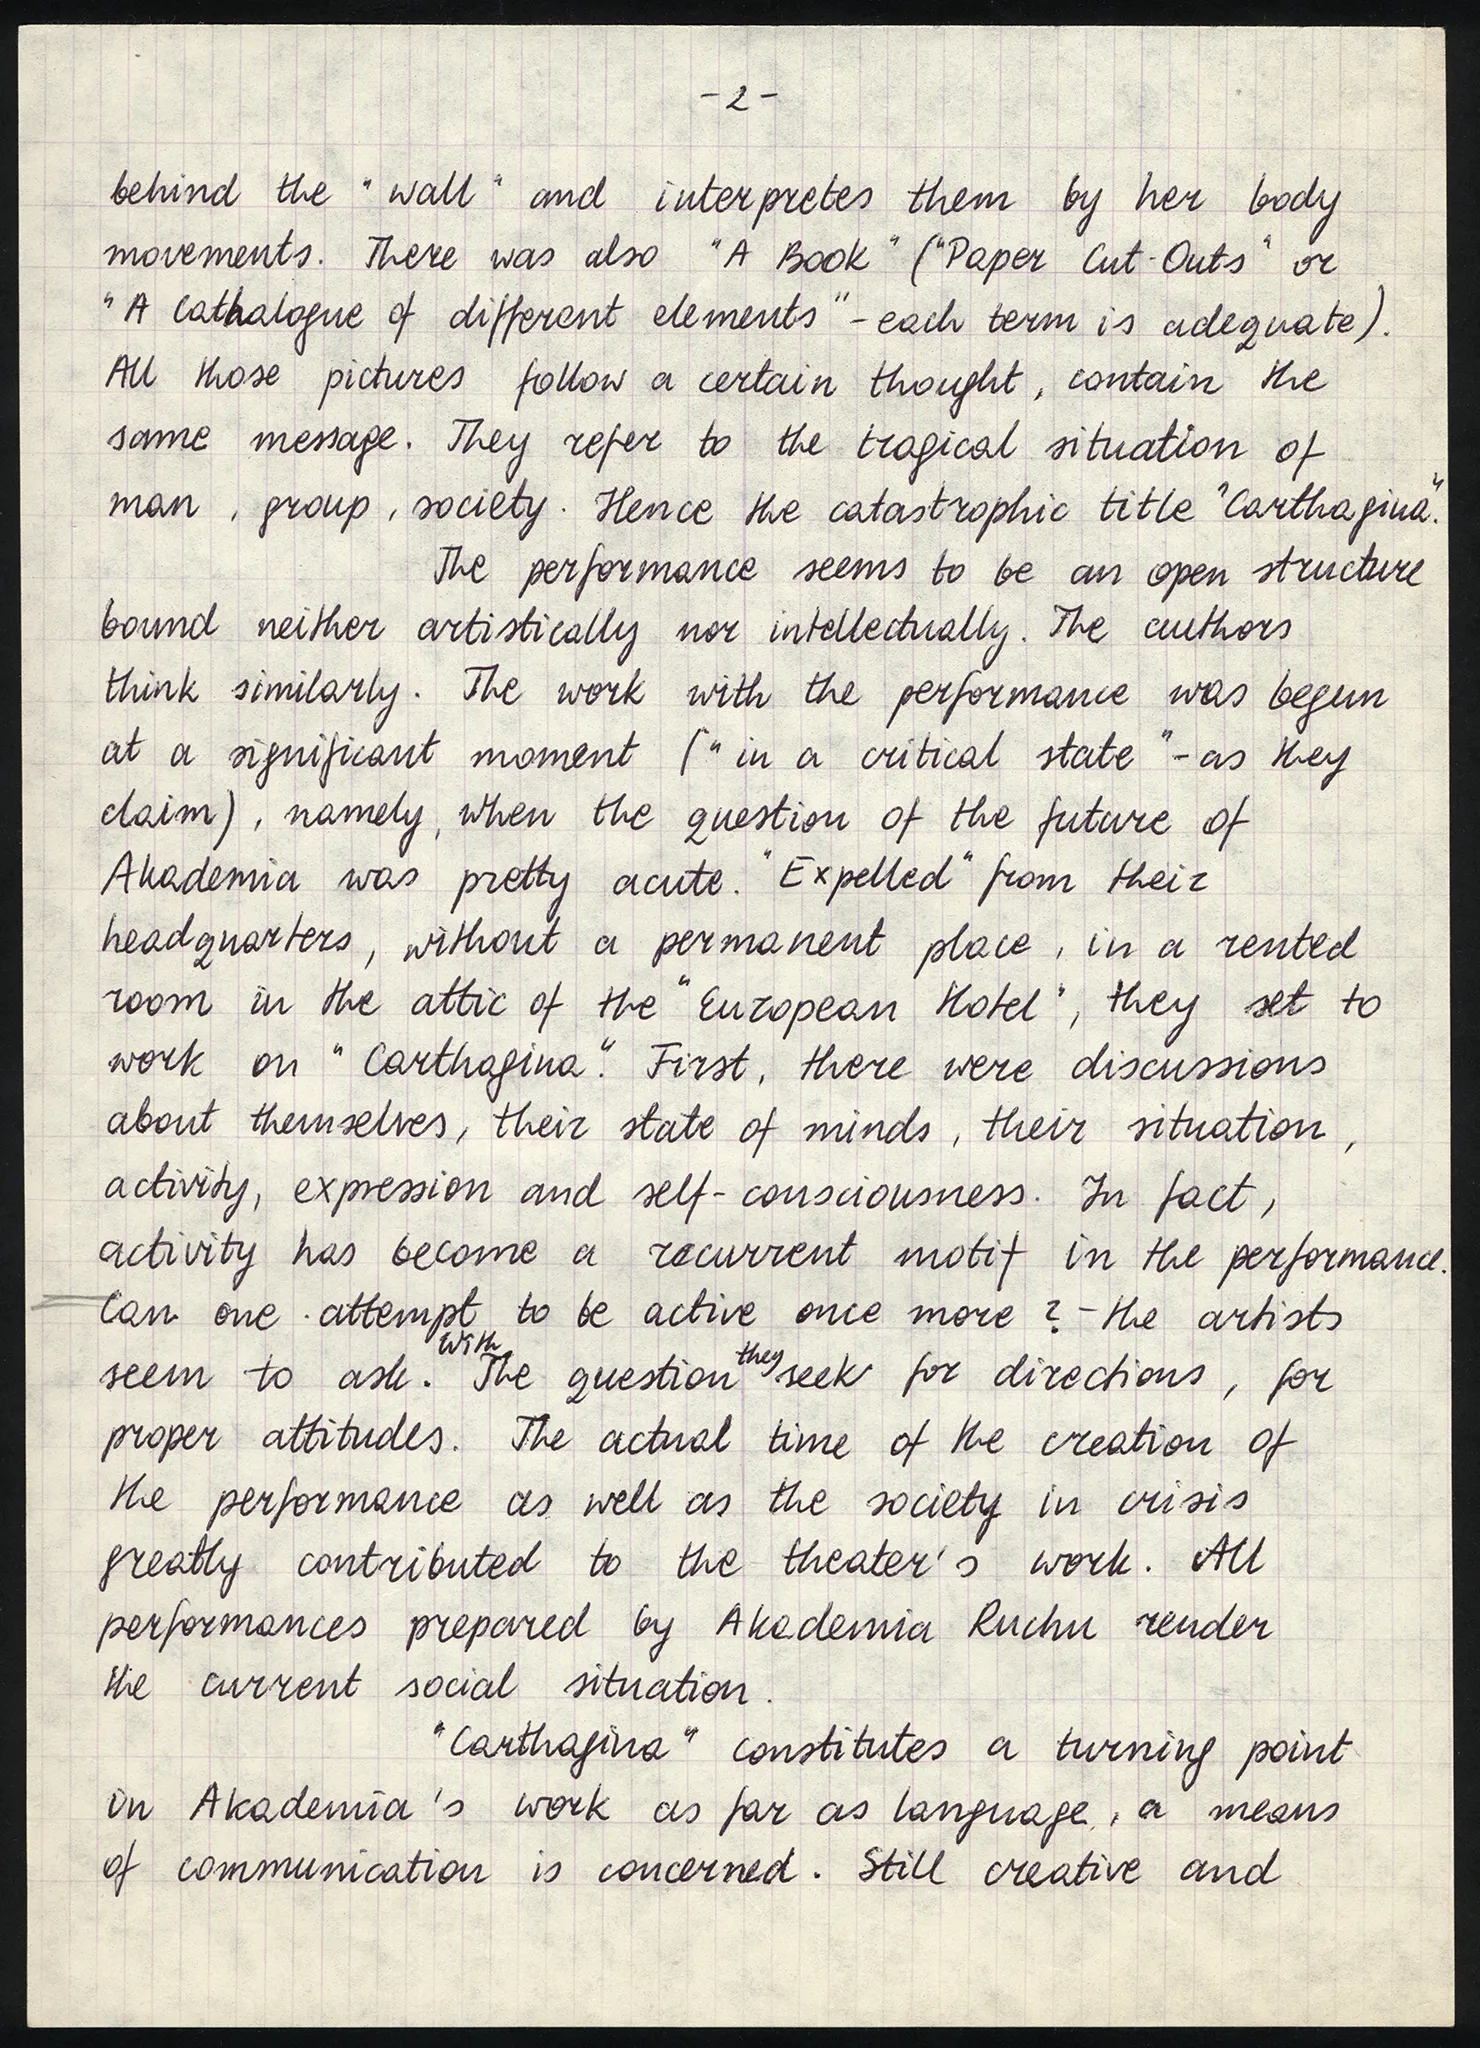 -2-
behind the "wall" and interpretes them by her body
movements. There was also "A Book" ("Paper Cut-Outs" or
"A Cathalogue of different elements" - each term is adequate).
All those pictures follow a certain thought, contain the
same message. They refer to the tragical situation of
man, group, society. Hence the catastrophic title "Carthagina".
The performance seems to be an open structure
bound neither artistically nor intellectually. The authors
think similarly. The work with the performance was begun
at a significant moment ("in a critical state" - as they
claim), namely, when the question of the future of
Akademia was pretty acute. "Expelled" from their
headquarters, without a permanent place, in a rented
room in the attic of the "European Hotel", they set to
work on "Carthagina". First, there were discussions
about themselves, their state of minds, their situation,
activity, expression and self-consciousness. In fact,
activity has become a recurrent motif in the performance.
Can one attempt to be active once more? - the artists
seem to ask. With The question they seek for directions, for
proper attitudes. The actual time of the creation of
the performance as well as the society in crisis
greatly contributed to the theater's work. All
performances prepared by Akademia Ruchu render
the current social situation.
"Carthagina" constitutes a turning point
in Akademia's work as far as language, a means
of communication is concerned. Still creative and